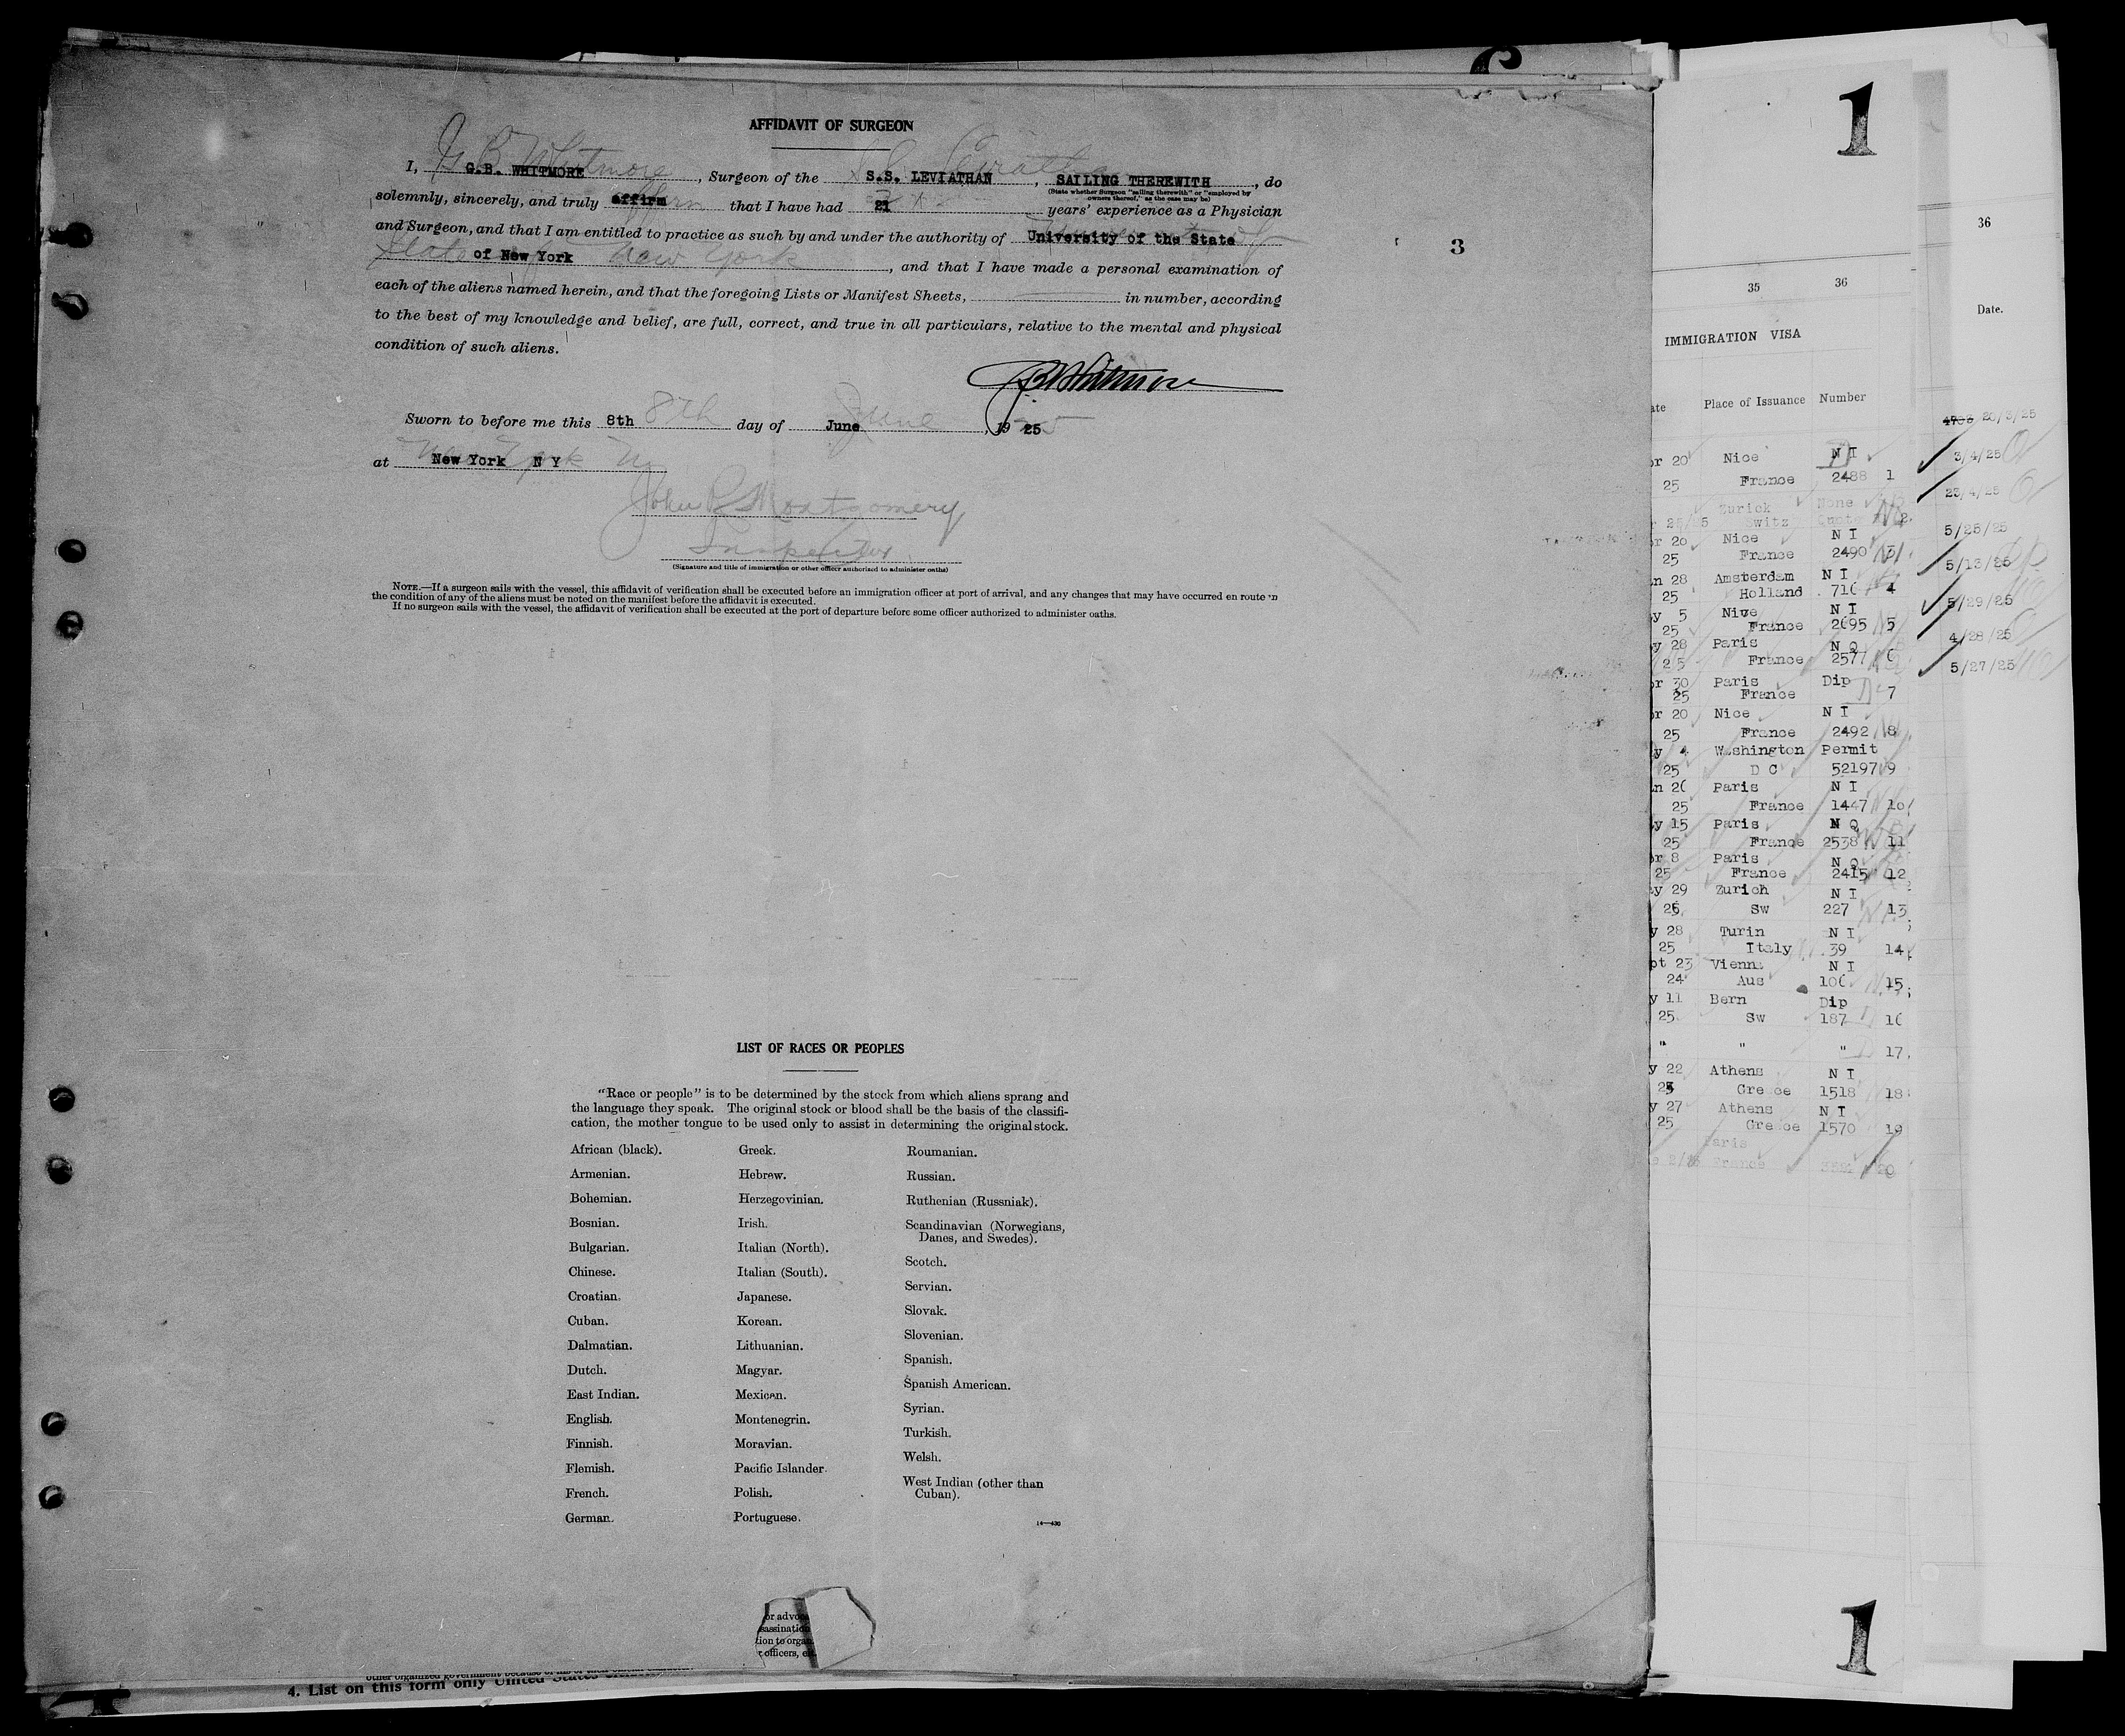 AFFIDAVIT OF SURGEON
G B Whitmore
I, G.B. WHITMORE, Surgeon of the S.S. LEVIATHAN, SAILING THEREWITH, do
(State whether Surgeon "sailing therewith" or "employed by
owners thereof," as the case may be)
solemnly, sincerely, and truly affirm that I have had 21 years' experience as a Physician
and Surgeon, and that I am entitled to practice as such by and under the authority of University of the State
of New York, and that I have made a personal examination of
State of New York
each of the aliens named herein, and that the foregoing Lists or Manifest Sheets, in number, according
to the best of my knowledge and belief, are full, correct, and true in all particulars, relative to the mental and physical
condition of such aliens.
G B Whitmore
Sworn to before me this 8th 8th day of June June, 1925
at New York N Y
John R Montgomery
Inspector
(Signature and title of immigration or other officer authorized to administer oaths)
NOTE.—If a surgeon sails with the vessel, this affidavit of verification shall be executed before an immigration officer at port of arrival, and any changes that may have occurred en route in
the condition of any of the aliens must be noted on the manifest before the affidavit is executed.
If no surgeon sails with the vessel, the affidavit of verification shall be executed at the port of departure before some officer authorized to administer oaths.
3
LIST OF RACES OR PEOPLES
"Race or people" is to be determined by the stock from which aliens sprang and
the language they speak. The original stock or blood shall be the basis of the classifi-
cation, the mother tongue to be used only to assist in determining the original stock.
African (black).
Armenian.
Bohemian.
Bosnian.
Bulgarian.
Chinese.
Croatian.
Cuban.
Dalmatian.
Dutch.
East Indian.
English.
Finnish.
Flemish.
French.
German.
Greek.
Hebrew.
Herzegovinian.
Irish.
Italian (North).
Italian (South).
Japanese.
Korean.
Lithuanian.
Magyar.
Mexican.
Montenegrin.
Moravian.
Pacific Islander.
Polish.
Portuguese.
Roumanian.
Russian.
Ruthenian (Russniak).
Scandinavian (Norwegians,
Danes, and Swedes).
Scotch.
Servian.
Slovak.
Slovenian.
Spanish.
Spanish American.
Syrian.
Turkish.
Welsh.
West Indian (other than
Cuban).
14—430
or advoca
sassination
tion to organ
r officers, e
4. List on this form only United States
1
35 36
IMMIGRATION VISA
ate Place of Issuance Number
or 20 Nice N I
25 France 2488 1
Zurich None
Switz Quota 2
or 20 Nice N I
25 France 2490 3
n 28 Amsterdam N I
25 Holland 716 4
y 5 Nive N I
25 France 2695 5
y 28 Paris N Q
25 France 2577 6
or 30 Paris Dip
25 France 7
or 20 Nice N I
25 France 2492 8
y 4 Washington Permit
25 D C 52197 9
n 26 Paris N I
25 France 1447 10
y 15 Paris N Q
25 France 2538 11
or 8 Paris N Q
25 France 2415 12
y 29 Zurich N I
25 Sw 227 13
y 28 Turin N I
25 Italy 39 14
pt 23 Vienna N I
24 Aus 106 15
y 11 Bern Dip
25 Sw 187 16
" " " 17
y 22 Athens N I
25 Greece 1518 18
y 27 Athens N I
25 Greece 1570 19
Paris
France 20
1
36
Date.
4708 20/3/25
3/4/25
25/4/25
5/25/25
5/13/25
5/29/25
4/28/25
5/27/25